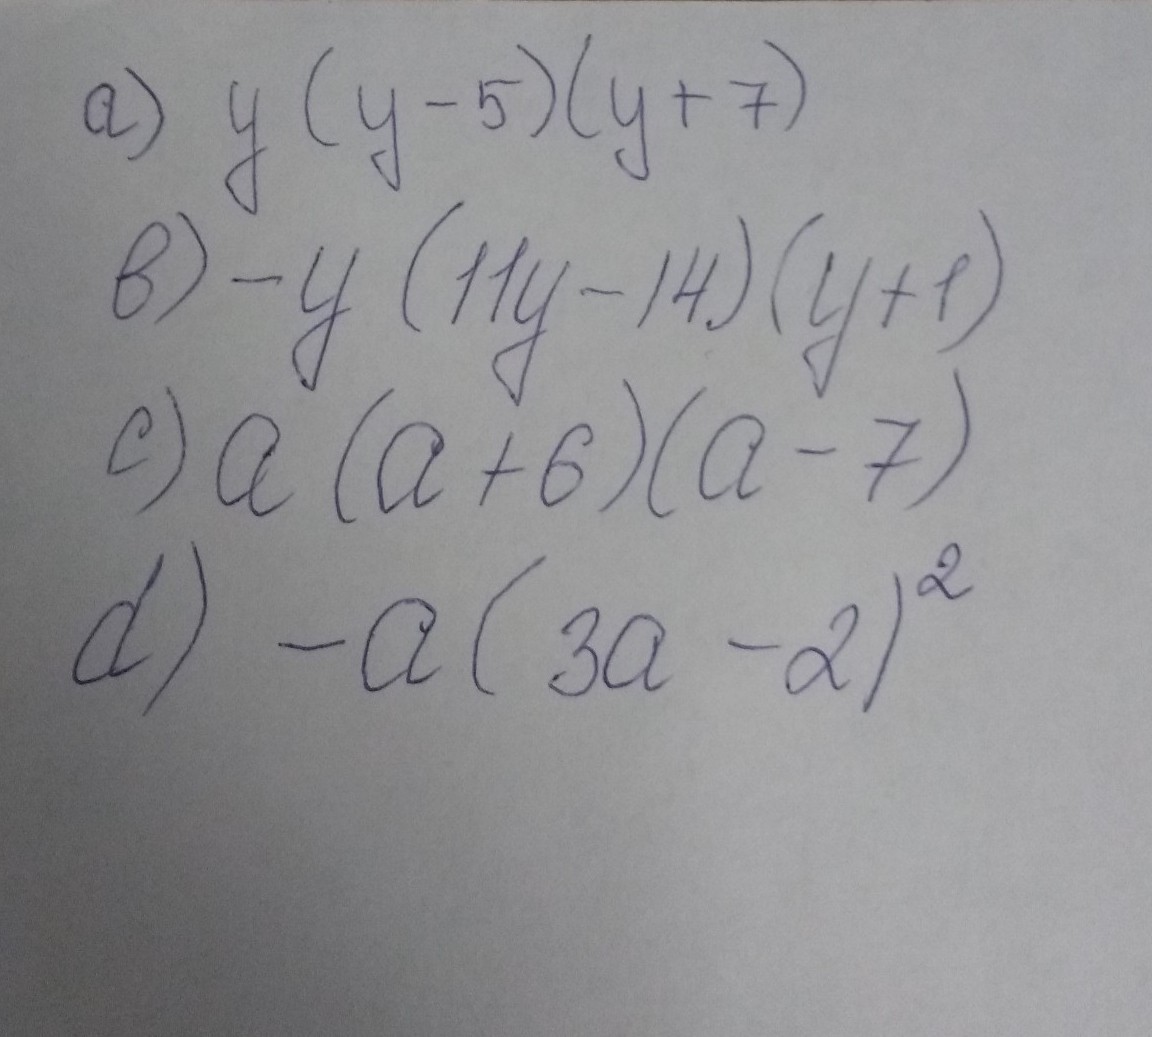 a) y (y - 5)(y + 7)
в) - y (11y - 14)(y + 1)
c) a (a + 6)(a - 7)
d) - a ( 3a - 2)²